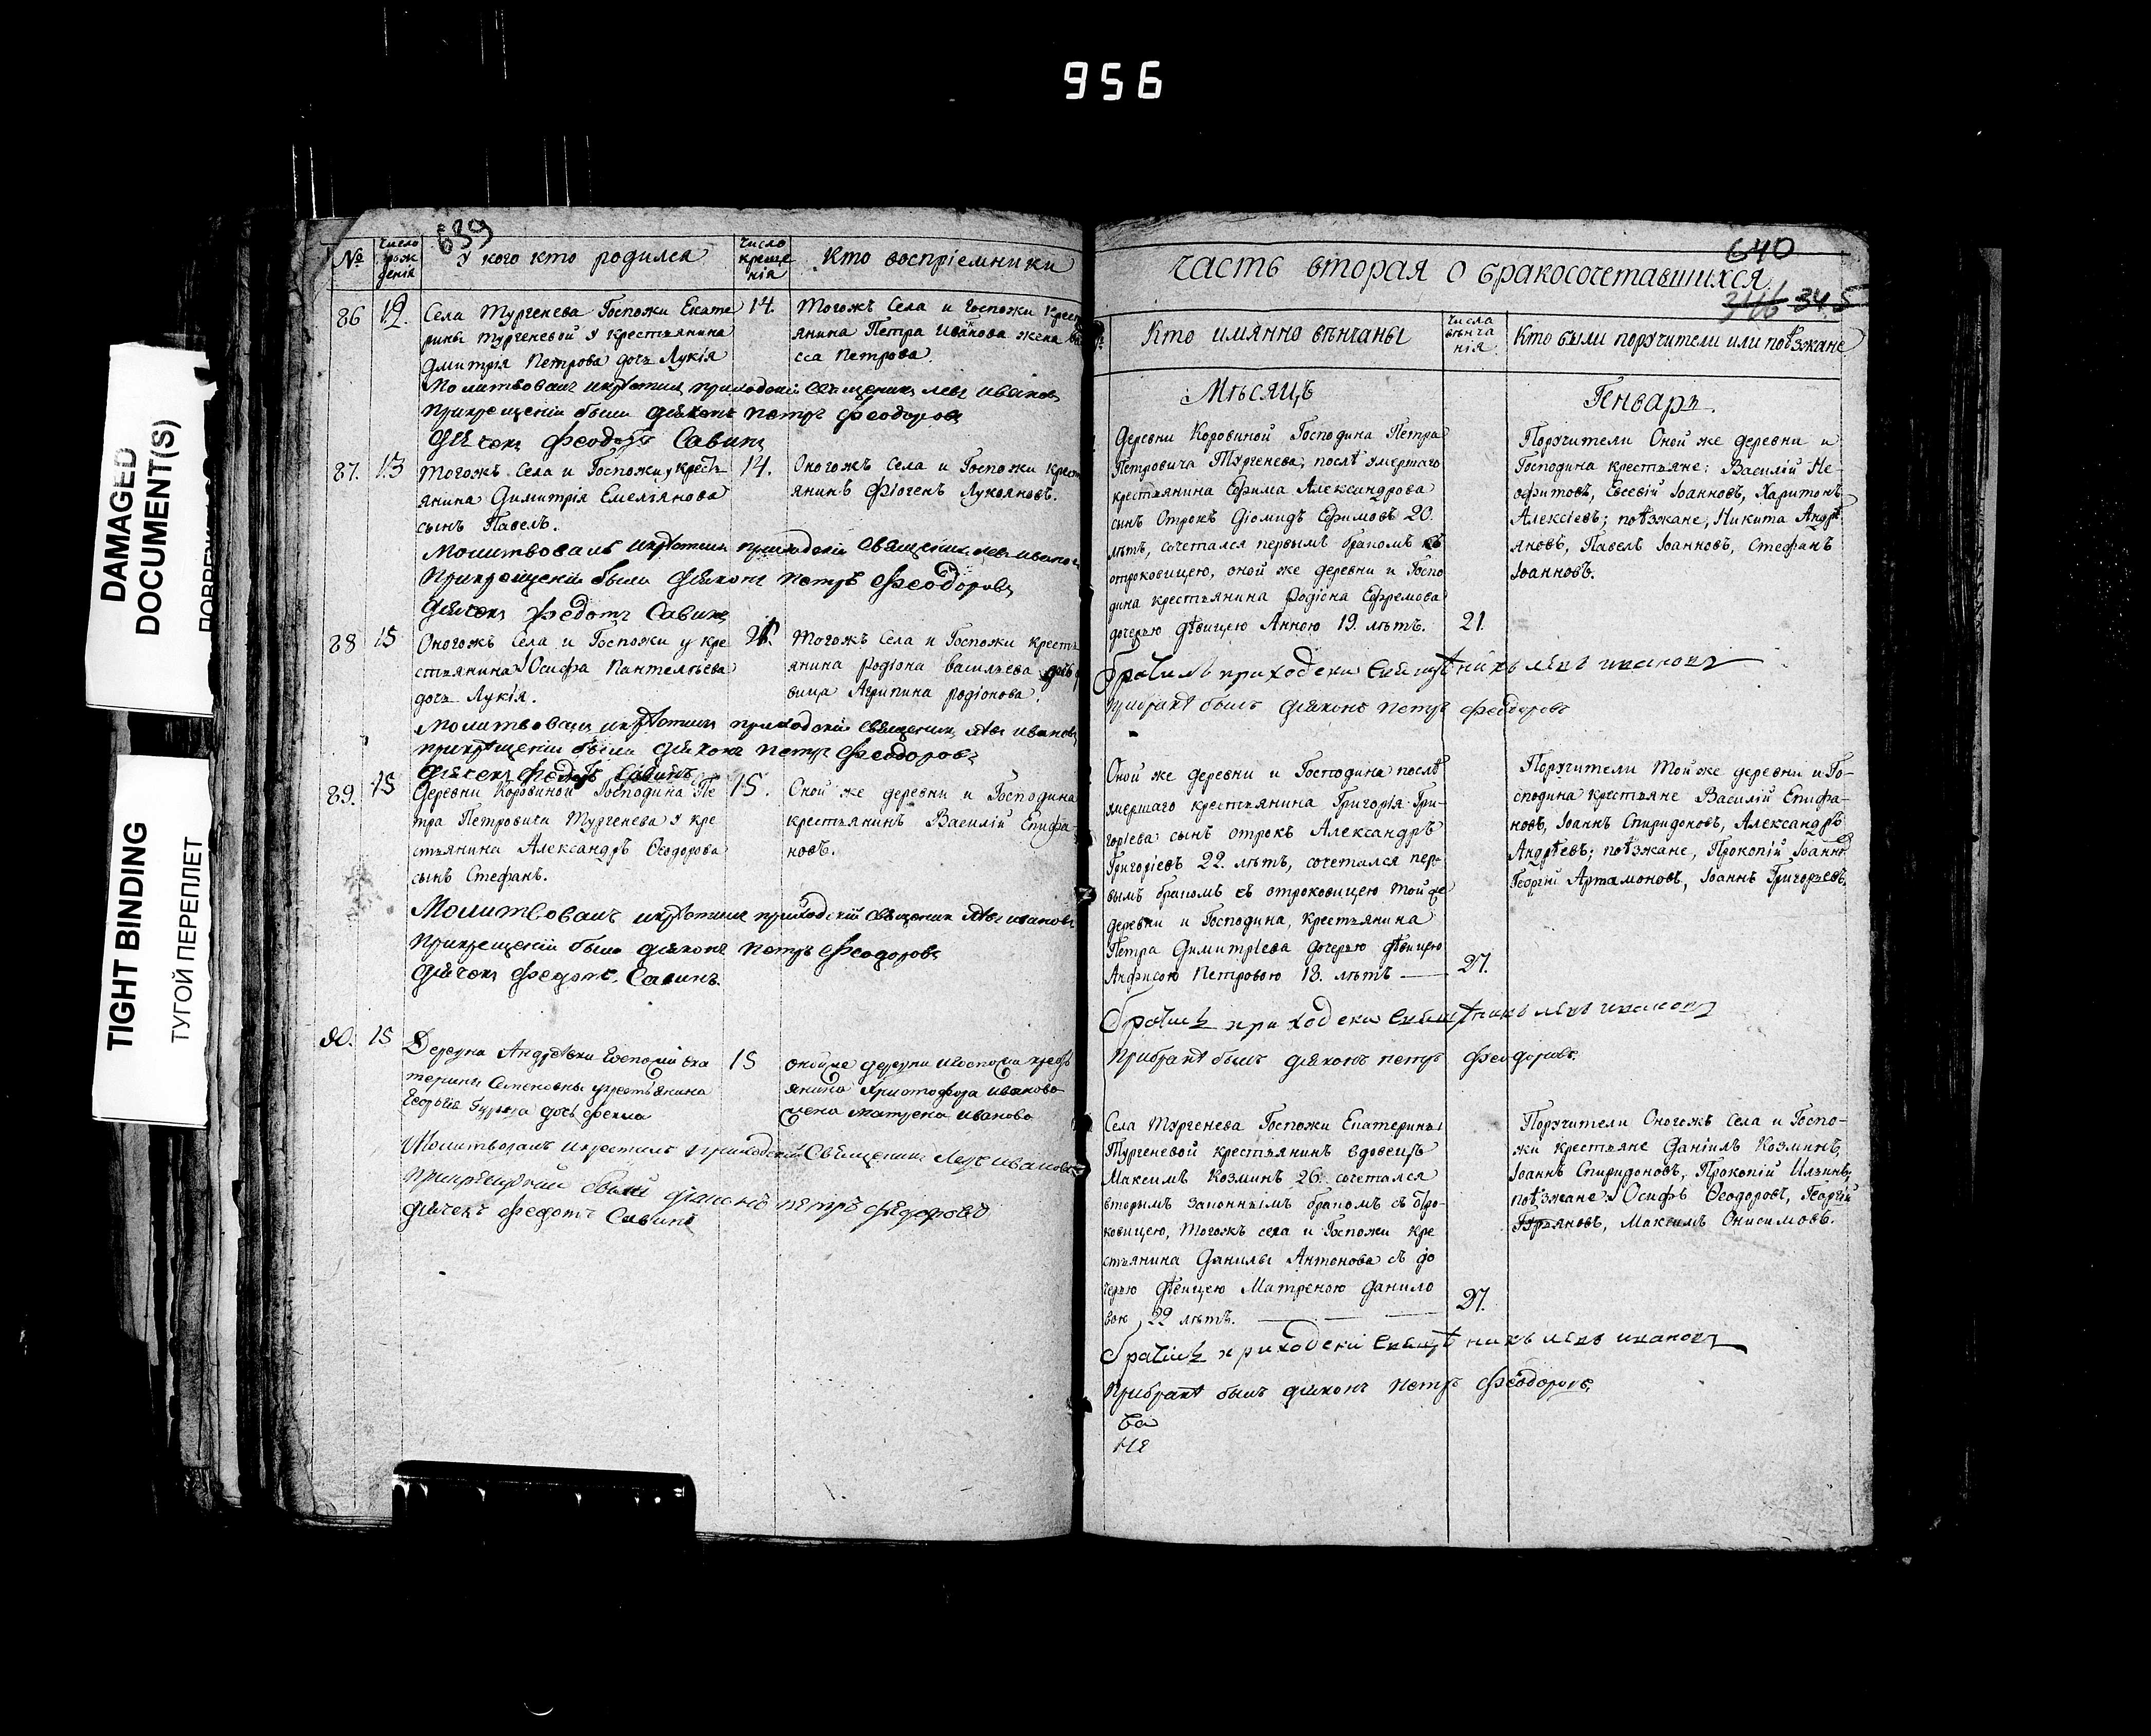 956
DAMAGED
DOCUMENT(S)
TIGHT BINDING
ТУГОЙ ПЕРЕПЛЕТ
639
№
число рож денія
У кого кто родился
число креще нія
Кто воспріемники
86
12.
Села Тургенева Госпожи Екате
рины Тургеневой у крестьянина
Дмитрія Петрова дочь Лукія
14.
Тогожъ Села и Госпожи крест
янина Петра Иванова жена
Петрова.
Молитвовалъ и крѣстилъ приходскій священникъ левъ ивановъ
При крещеніи были діяконъ петръ феодоровъ
дьячекъ феодотъ Савинъ
87.
13
Тогожъ Села и Госпожи у крестъ
янина Димитрія Емельянова
сынъ Павелъ.
14.
Оногожъ Села и Госпожи крест
янинъ Фіогенъ Лукояновъ.
Молитвовалъ и крѣстилъ приходскій священникъ левъ иванов
При крещеніи были діяконъ петръ феодоровъ
дьячекъ федотъ Савинъ
88
15
Оногожъ Села и Госпожи у кре
стьянина Осифа Пантелѣева
дочь Лукія.
Тогожъ Села и Госпожи кресть
янина Родіона Васильева
вица Агрипина Родіонова
Молитвовалъ и крѣстилъ приходскій священникъ левъ ивановъ
при крѣщеніи были діяконъ петръ феодоровъ
дьячекъ федотъ Савинъ
89.
15
Деревни Коровиной Господина Пе
тра Петровича Тургенева у кре
стьянина Александръ Ѳеодорова
сынъ Стефанъ.
15.
Оной же деревни и Господина
крестьянинъ Василій Епифа
новъ.
Молитвовалъ и крѣстилъ приходскій священникъ левъ ивановъ
При крещеніи были діяконъ петръ феодоровъ
дьячекъ федотъ Савинъ.
90.
15
Деревни Андрѣевки Госпожи Ека
терины Семеновны у крестьянина
Георгія Гурьева дочь фекла
15
оной же деревни и госпожи кресть
янина Христофора иванова
жена матрена иванова
Молитвовалъ и крестилъ приходскій Священникъ Левъ ивановъ
При крещеніи были діаконъ петръ федоровъ
дьячекъ федотъ Савинъ
640
346 345
Часть вторая о бракосочетавшихся.
Кто имянно вѣнчаны
числа вѣнча нія.
Кто были поручители или поѣзжане
Мѣсяцъ
Генварь.
Деревни Коровиной Господина Петра
Петровича Тургенева, послѣ умершаго
крестьянина Ефима Александрова
сынъ Отрокъ Діомидъ Ефимовъ 20.
лѣтъ, сочетался первымъ бракомъ съ
отроковицею, оной же деревни и Госпо
дина крестьянина Родіона Ефремова
дочерью дѣвицею Анною 19. лѣтъ.
21.
Поручители Оной же деревни и
Господина крестьяне: Василій Не-
офитовъ, Евсевій Іоанновъ, Харитонъ
Алексіевъ; поѣзжане, Никита Андрі
яновъ, Павелъ Іоанновъ, Стефанъ
Іоанновъ.
Брачилъ приходски священникъ левъ ивановъ
При бракѣ былъ діяконъ петръ феодоровъ
Оной же деревни и Господина послѣ
умершаго крестьянина Григорія Гри-
горіева сынъ отрокъ Александръ
Григоріевъ 22. лѣтъ, сочетался пер-
вымъ бракомъ съ отроковицею той же
деревни и Господина, крестьянина
Петра Димитріева дочерью дѣвицею
Анфисою Петровою 18. лѣтъ
27.
Поручители Той же деревни и Го-
сподина крестьяне Василій Епифа-
новъ, Іоаннъ Спиридоновъ, Александръ
Андрѣевъ; поѣзжане, Прокопій Іоанно
Георгій Артамоновъ, Іоаннъ Григорьевъ.
Брачилъ приходски священникъ левъ ивановъ
При бракѣ былъ діяконъ петръ феодоровъ.
Села Тургенева Госпожи Екатерины
Тургеневой крестьянинъ вдовецъ
Максимъ Козминъ 26. сочетался
вторымъ законнымъ бракомъ съ отро-
ковицею, Тогожъ села и Госпожи кре
стьянина Данилы Антонова съ до
черью дѣвицею Матреною Данило
вою 22 лѣтъ.
27.
Поручители Оногожъ Села и Госпо-
жи крестьяне Даніилъ Козминъ,
Іоаннъ Спиридоновъ, Прокопій Ильинъ,
поѣзжане: Осифъ Ѳеодоровъ, Георгій
Гурьяновъ, Максимъ Онисимовъ.
Брачилъ приходскій священникъ левъ ивановъ
При бракѣ былъ діяконъ петръ феодоровъ